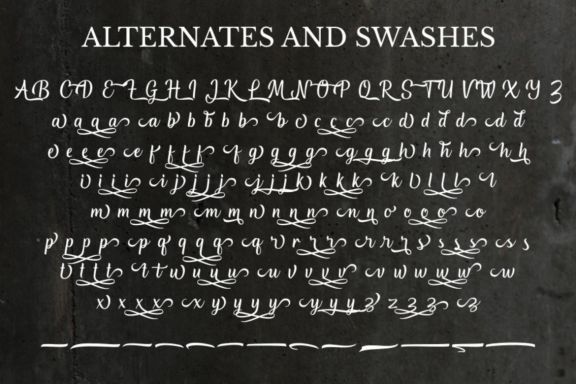 ALTERNATES AND SWASHES
A B C D E F G H I J K L M N O P Q R S T U V W X Y Z
a a a a a a b b b b b b c c c c c d d d d d d
e e e e e f f f f f g g g g g g g g g h h h h h h
i i i i i j j j j j j j k k k k k l l l l l
m m m m m m n n n n n n o o o o o
p p p p p q q q q q r r r r r r r s s s s s s
t t t t t t u u u u u v v v v w w w w w
x x x x x y y y y y y y y z z z z